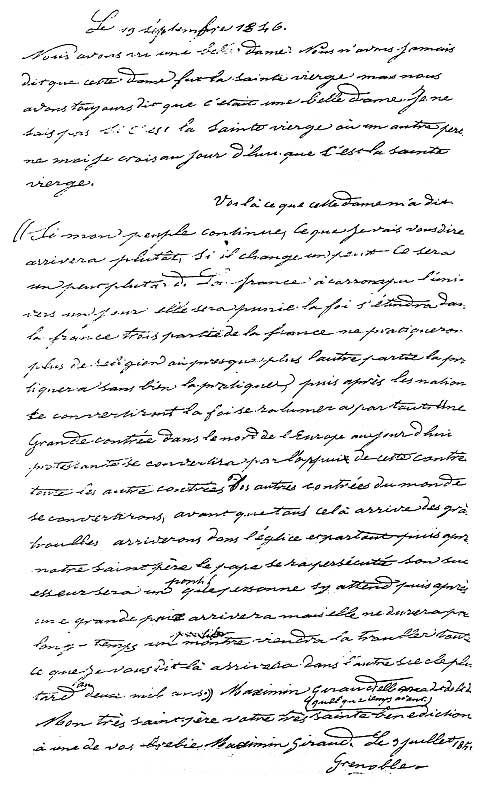 Le 19 séptembre 1846.
Nous avons vu une belle dame. Nous n'avons jamais
dit que cette dame fut la sainte vierge mas nous
avons toujours dit que c'était une belle dame. Je ne
sais pas si c'est la sainte vierge où un autre perso
ne moi je crois au jour d'hui que c'est la sainte
vierge.
Voilà ce que cette dame m'a dit
((Si mon peuple continue, ce que je vais vous dire
arrivera plutôt, si il change un peu, ce sera
un peu plutard. La france à corrompu l'uni
vers un jour elle sera punie la foi s'éteindra dan
la france trois partie de la france ne pratiqueron
plus de religien où presque plus l'autre partie la pra
tiquera sans bien la pratiquer) puis après les nation
se convertiront la foi se ralumera partout Une
Grande contrée dans le nord de l'Europe aujourd'hui
protestante se convertira par l'appui de cette contre
toute les autre contrées des autres contrées du monde
se convertirons, avant que tous celà arrive des grâ
troubles arriverons dans l'église et partout puis apré
notre saint père le pape sera persécuté son suc
esseur sera un pontif que personne sy attend puis après
une grande paix arrivera mais elle ne durera pa
long-temps un monstre viendra la troubler tout
ce que je vous dit là arrivera dans l'autre siecle plu
tard aux deux mil ans)) Maximin Giraud elle ma dit de le dire
(quelque temps avant)
Mon très saint père votre très sainte benediction
à une de vos brebie Maximin Giraud. Le 3 juillet 1851
Grenoble